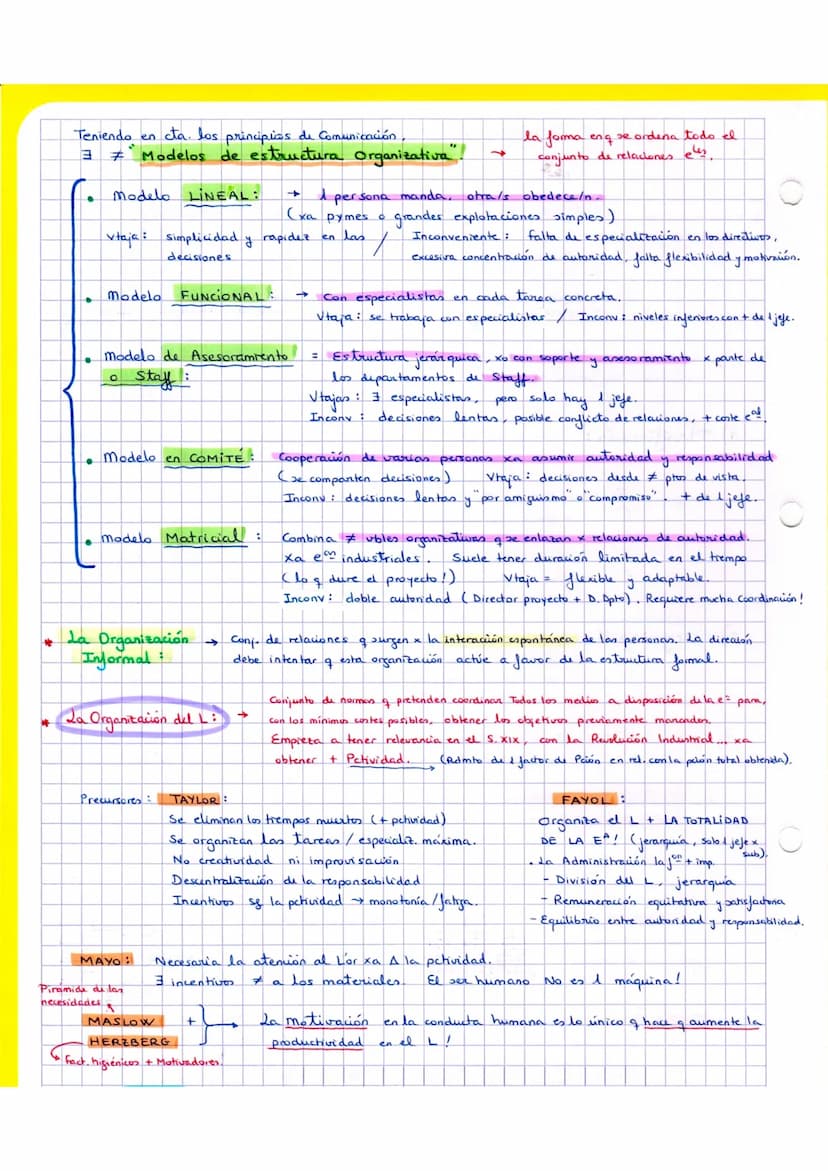 Teniendo en cta. los principios de Comunicación,
∃ ≠ "Modelos de estructura Organizativa". → la forma en q se ordena todo el
conjunto de relaciones eles.
• Modelo LINEAL: → 1 persona manda, otra/s obedece/n.
(xa pymes o grandes explotaciones simples)
Vtaja: simplicidad y rapidez en las decisiones / Inconveniente: falta de especialización en los directivos,
excesiva concentración de autoridad, falta flexibilidad y motivación.
• Modelo FUNCIONAL: → Con especialistas en cada tarea concreta.
Vtaja: se trabaja con especialistas / Inconv: niveles inferiores con + de 1 jefe.
• Modelo de Asesoramiento = Estructura jerárquica, xo con soporte y asesoramiento x parte de
o Staff: los departamentos de Staff.
Vtajas: ∃ especialistas, pero solo hay 1 jefe.
Inconv: decisiones lentas, posible conflicto de relaciones, + coste ead.
• Modelo en COMITÉ: Cooperación de varias personas xa asumir autoridad y responsabilidad
(se comparten decisiones) Vtaja: decisiones desde ≠ ptos de vista.
Inconv: decisiones lentas y "por amiguismo" o "compromiso". + de 1 jefe.
• Modelo Matricial: Combina ≠ vbles organizativas q se enlazan x relaciones de autoridad.
xa eas industriales. Suele tener duración limitada en el tiempo
(lo q dure el proyecto!) Vtaja = flexible y adaptable.
Inconv: doble autoridad (Director proyecto + D. Dpto). Requiere mucha Coordinación!
* La Organización → Conj. de relaciones q surgen x la interacción espontánea de las personas. La dirección
Informal: debe intentar q esta organización actúe a favor de la estructura formal.
* La Organización del L: → Conjunto de normas q pretenden coordinar Todos los medios a disposición de la ea para,
con los mínimos costes posibles, obtener los objetivos previamente marcados.
Empieza a tener relevancia en el S. XIX, con la Revolución Industrial... xa
obtener + Pctividad. → (Rdmto de 1 factor de Pción en rel. con la pción total obtenida).
Precursores: TAYLOR:
Se eliminan los tiempos muertos (+ pctividad)
Se organizan las tareas / especializ. máxima.
No creatividad ni improvisación
Descentralización de la responsabilidad
Incentivos sg la pctividad → monotonía/fatiga.
FAYOL:
Organiza el L + LA TOTALIDAD
DE LA EA! (jerarquía, solo 1 jefe x
sub).
• La Administración la fon + imp.
- División del L, jerarquía
- Remuneración equitativa y satisfactoria
- Equilibrio entre autoridad y responsabilidad.
MAYO: Necesaria la atención al L'or xa Δ la pctividad.
∃ incentivos ≠ a los materiales. El ser humano No es 1 máquina!
Pirámide de las
necesidades
MASLOW + → La motivación en la conducta humana es lo único q hace q aumente la
HERZBERG productividad en el L!
Fact. higiénicos + Motivadores.